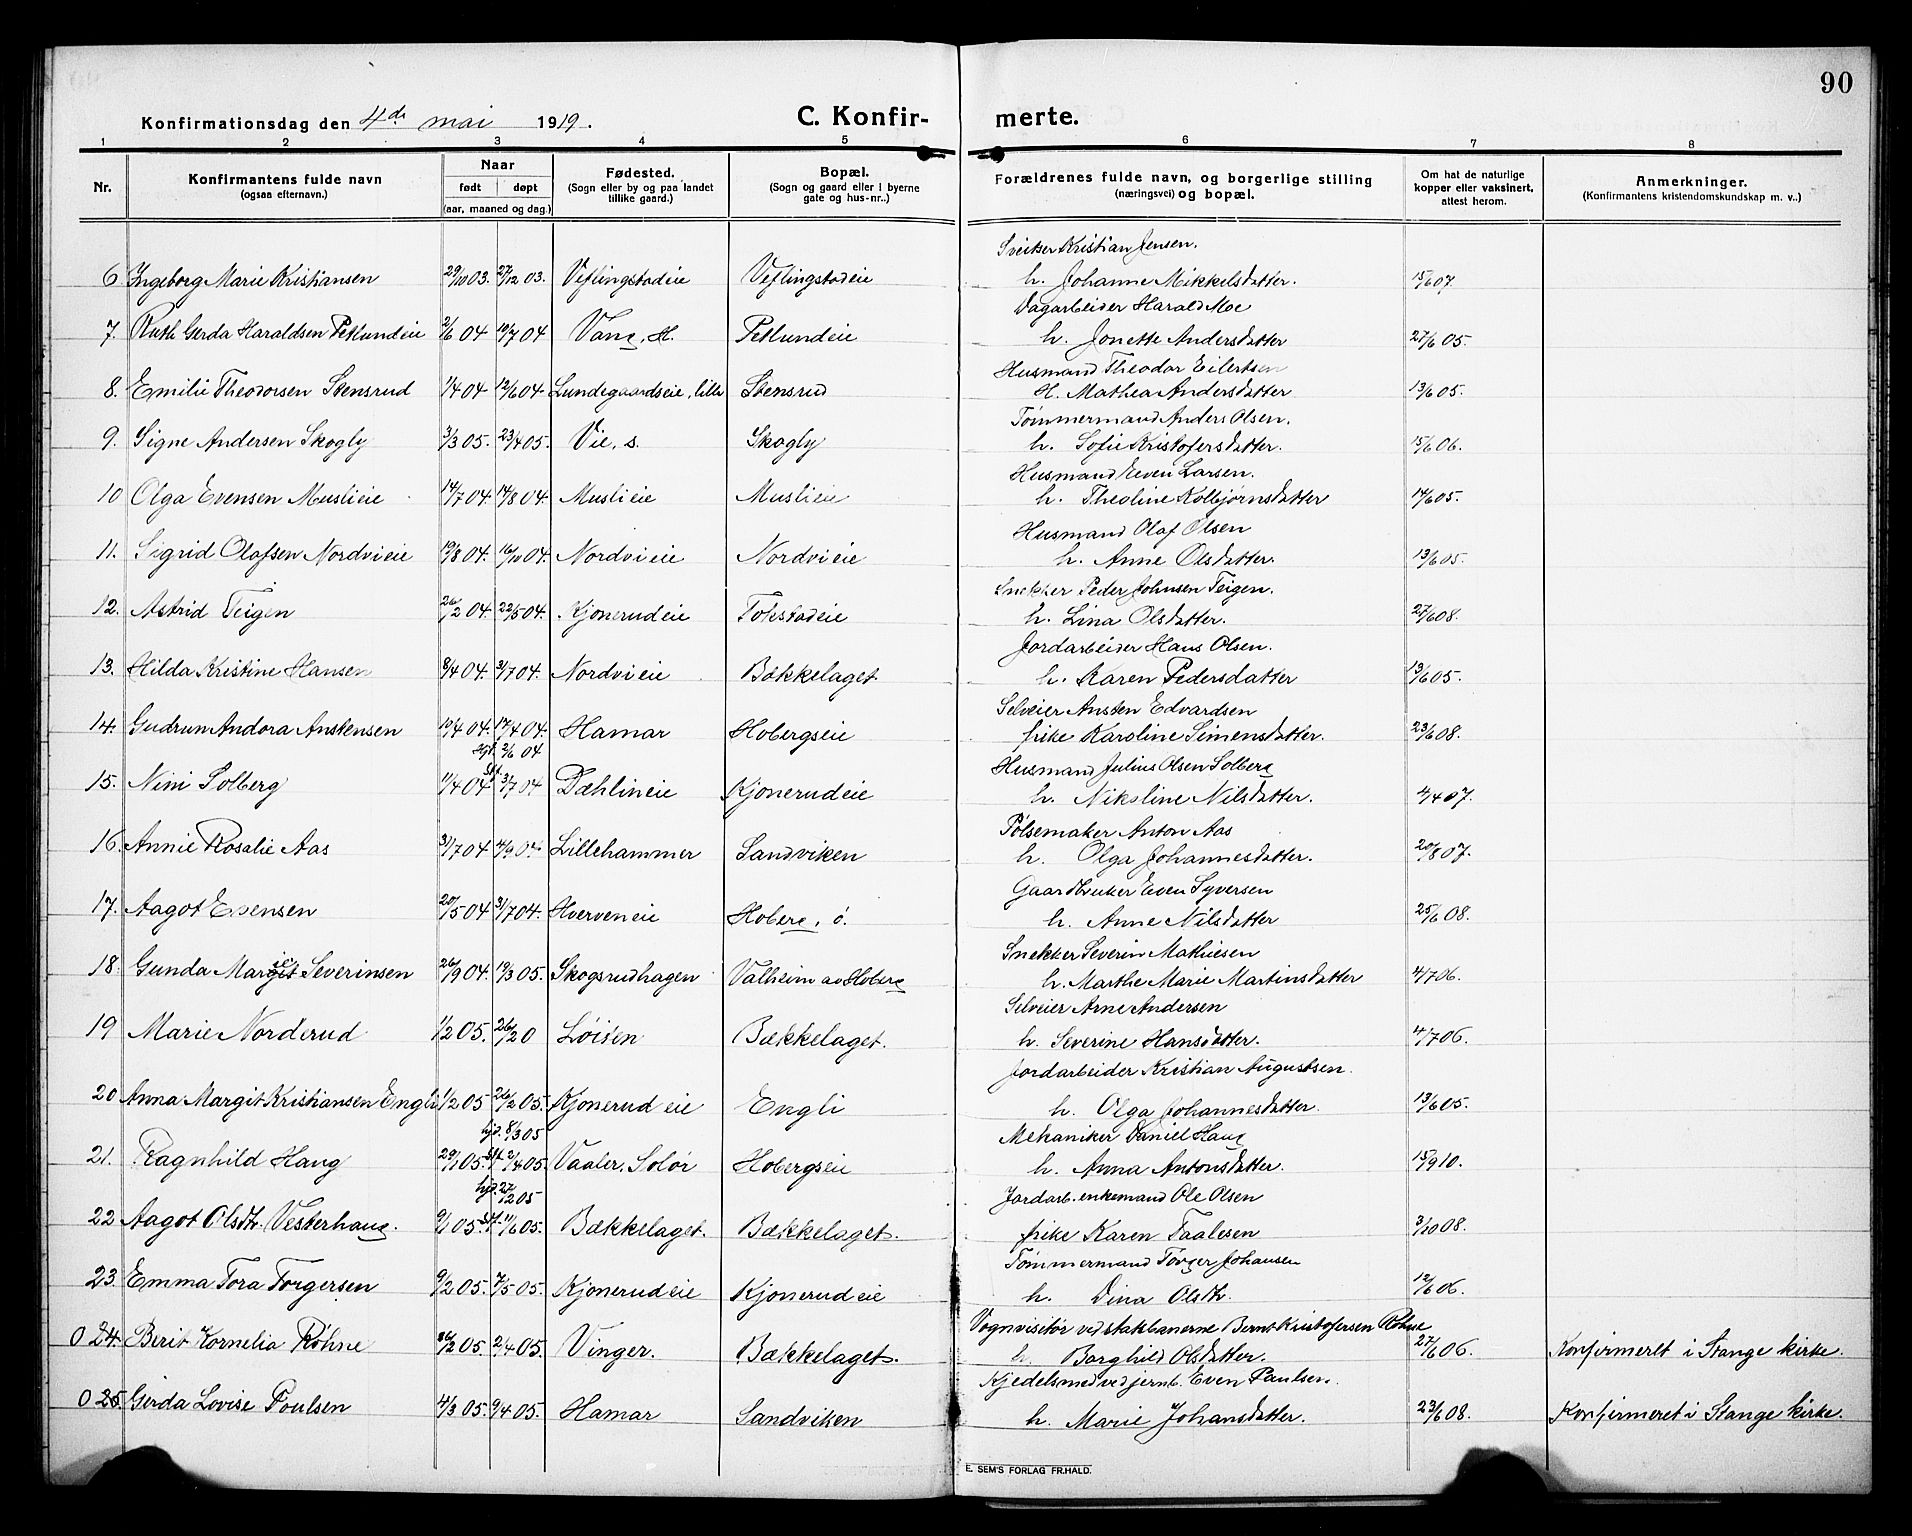 90
Konfirmationsdag den 4de mai 1919.
C. Konfir-
merte.
1 2 3 4 5 6 7 8
Nr.
Konfirmantens fulde navn
(ogsaa efternavn.)
Naar
født døpt
(aar, maaned og dag.)
Fødested.
(Sogn eller by og paa landet
tillike gaard.)
Bopæl.
(Sogn og gaard eller i byerne
gate og hus-nr..)
Forældrenes fulde navn, og borgerlige stilling
(næringsvei) og bopæl.
Om hat de naturlige
kopper eller vaksinert,
attest herom.
Anmerkninger.
(Konfirmantens kristendomskundskap m. v..)
Sveitser Kristian Jensen.
6 Ingeborg Marie Kristiansen 29/10 03. 27/12 03. Veflingstadeie Veflingstadeie h. Johanne Mikkelsdatter. 15/6 07.
Dagarbeider Harald Moe
7. Ruth Gerda Haraldsen Petlundeie 2/6 04 10/7 04 Vang, H. Petlundeie h. Jonette Andersdatter 27/6 05.
Husmand Theodor Eilertsen
8. Emilie Theodorsen Stensrud 1/4 04 12/6 04 Lundegaardseie, lille Stensrud H. Mathea Andersdatter 13/6 05.
Tømmermand Anders Olsen.
9. Signe Andersen Skogly 3/3 05. 23/4 05. Vie, s. Skogly h. Sofie Kristofersdatter. 15/6 06.
Husmand Even Larsen.
10 Olga Evensen Muslieie 14/7 04. 14/8 04. Muslieie Muslieie h. Theoline Kolbjørnsdatter 14/6 05.
Husmand Olaf Olsen
11. Sigrid Olafsen Nordvieie 19/8 04. 16/10 04. Nordvieie Nordvieie h. Anne Olsdatter. 13/6 05.
Snekker Peder Johnsen Teigen.
12. Astrid Teigen 26/2 04. 22/5 04. Kjonerudeie Tokstadeie h. Lina Olsdatter. 27/6 08.
Jordarbeider Hans Olsen.
13. Hilda Kristine Hansen 8/4 04. 3/7 04. Nordvieie Bækkelaget h. Karen Pedersdatter 13/6 05.
Selveier Ansten Edvardsen
14. Gudrun Andora Anstensen 10/4 04. 17/4 04. Hamar Hobergseie frike Karoline Simensdatter. 23/6 08.
2/6 04
Husmand Julius Olsen Solberg
15. Nini Solberg 11/4 04 St. 3/7 04 Dæhlineie Kjonerudeie h. Nikoline Nilsdatter. 4/4 07.
Pølsemaker Anton Aas
16. Annie Rosalie Aas 31/7 04 4/9 04. Lillehammer Sandviken h. Olga Johannesdatter. 20/8 07.
Gaardbruker Even Syversen
17. Aagot Evensen 20/5 04 31/7 04. Hverveneie Hoberg, ø. h. Anne Nilsdatter 25/6 08.
Snekker Severin Mathiesen
18. Gunda Margit ie Severinsen 26/9 04. 19/3 05. Skogsrudhagen Valheim av Hoberg h. Marthe Marie Martinsdatter 4/7 06.
Selveier Arne Andersen
19 Marie Norderud 1/2 05. 26/2 0 Løiten Bækkelaget. h. Severine Hansdatter. 4/7 06.
Jordarbeider Kristian Augustsen.
20 Anna Margit Kristiansen Engli 1/2 05 26/2 05. Kjonerudeie Engli h. Olga Johannesdatter. 13/6 05.
hjd. 8/3 05
Mekaniker Daniel Haug
21. Ragnhild Haug 29/1 05. St. 2/4 05. Vaaler, Solør Hobergseie h. Anna Antonsdatter. 15/9 10.
hjd. 27/12 05
Jordarb. enkemand Ole Olsen
22 Aagot Olsdtr. Vesterhaug. 9/1 05. St. 11/6 05. Bækkelaget. Bækkelaget. frike Karen Taalesen 3/10 08.
Tømmermand Torger Johansen
23. Emma Tora Torgersen 9/2 05. 7/5 05. Kjonerudeie Kjonerudeie h. Dina Olsdtr. 12/6 06.
Vognvisitør ved statsbanerne Bernt Kristofersen Røhne
0 24. Berit Kornelia Røhne /2 05. 2/4 05. Vinger. Bækkelaget. h. Borghild Olsdatter. 27/6 06. Konfirmeret i Stange kirke.
Kjedelsmed ved jernb. Even Paulsen.
0 25 Gerda Lovise Poulsen 4/3 05. 9/4 05. Hamar Sandviken h. Marie Johansdatter. 23/6 08. Konfirmeret i Stange kirke.
E. SEM'S FORLAG FR.HALD.